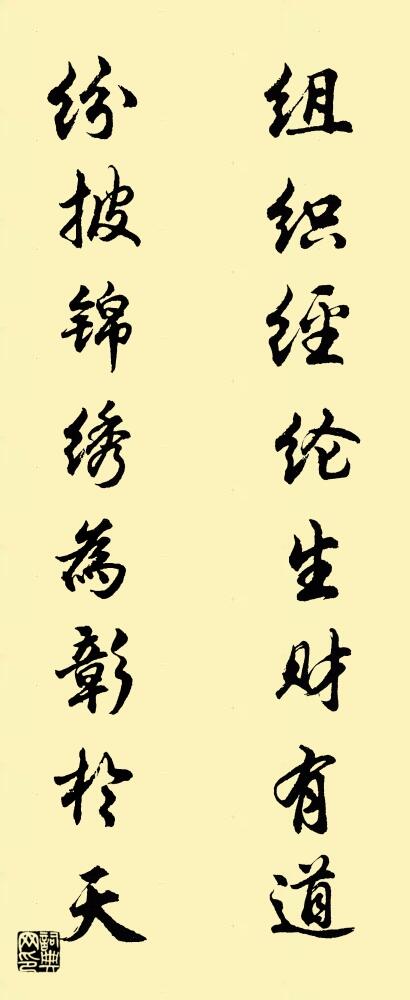 组织經纶生财有道
纷披锦绣為彰於天
詞典网印